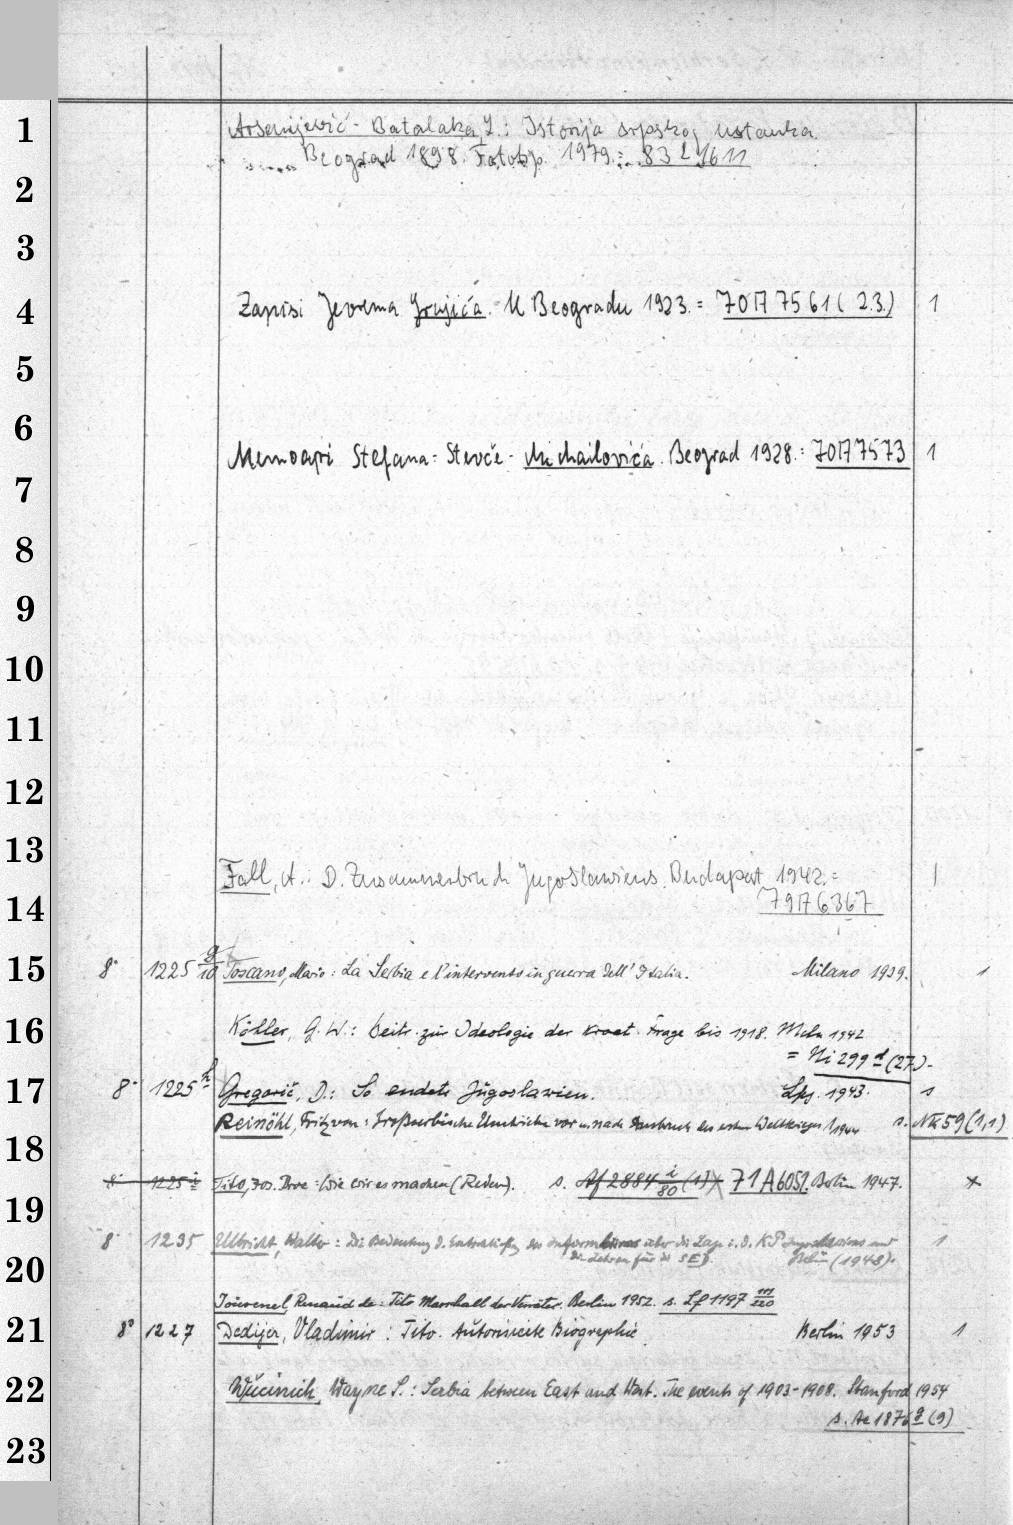 1
Arsenijević-Batalaka, L.: Istorija srpskog ustanka.
Beograd 1898. Fotokp. 1979.= 832 1611
2
3
4
Zapisi Jevrema Grujića. U Beogradu 1923. = 70 A 7561 (2.3.) 1
5
6
Memoari Stefana-Stevče-Michailovića. Beograd 1928.= 70 A 7573 1
7
8
9
10
11
12
13
Fall, A.: D. Zusammenbruch Jugoslawiens. Budapest 1942.= 1
14
79 A 6367
15
8° 1225 g/10 Toscano, Mario: La Serbia e l'intervento in guerra dell' Italia. Milano 1939. 1
16
Köhler, G. W.: Beitr. zur Ideologie der kroat. Frage bis 1918. Mchn 1942
= Ni 299 d (27).
17
8° 1225 h Gregorić, D.: So endete Jugoslawien. Lpz. 1943. 1
Reinöhl, Fritz von: Großserbische Umtriebe vor u. nach Ausbruch des ersten Weltkrieges 1944 s. Nk 59 (1,1)
18
8° 1225 i Tito, Jos. Broz: Wie wir es machen (Reden). s. Af 2884 i/80 (1) 71 A 6051. Berlin 1947. x
19
8° 1235 Ulbricht, Walter: Die Bedeutung d. Entschließg des Informbüros über die Lage i. d. KP Jugoslawiens und 1
20
die Lehren für die SED. Berlin (1948).
Jouvenel, Renaud de: Tito Marschall der Verräter. Berlin 1952. s. Lf 1197 m/220
21
8° 1227 Dedijer, Vladimir: Tito. Autorisierte Biographie. Berlin 1953 1
22
Vucinich, Wayne S.: Serbia between East and West. The events of 1903-1908. Stanford 1954
s. Ae 1876 g (9)
23